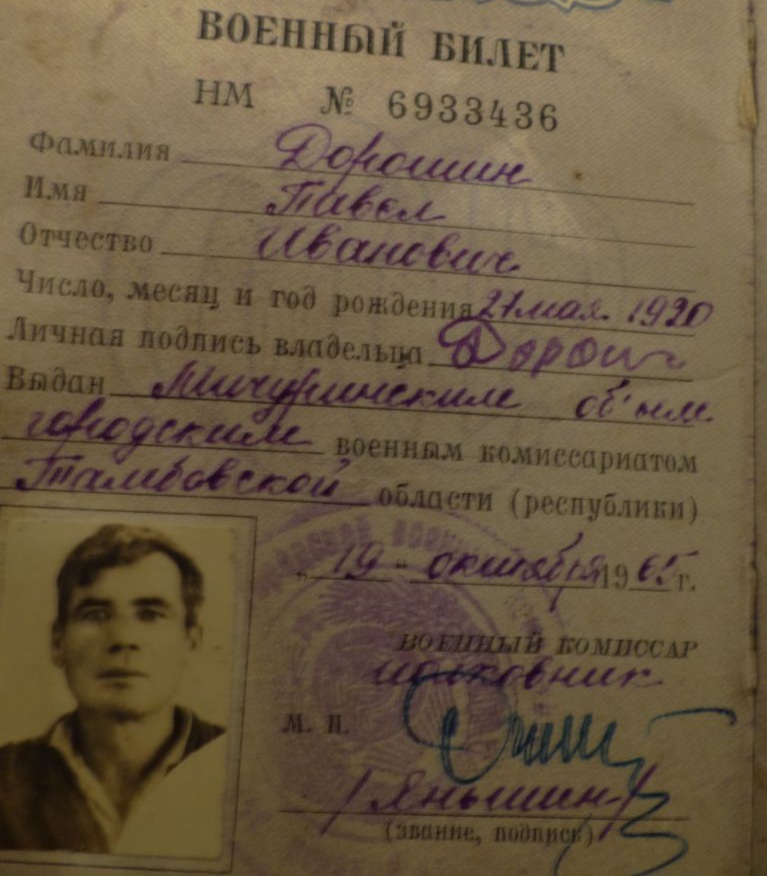 ВОЕННЫЙ БИЛЕТ
НМ № 6933436
Фамилия Дорошин
Имя Павел
Отчество Иванович
Число, месяц и год рождения 21 мая 1920
Личная подпись владельца Дорош
Выдан Мичуринским об'ед.
городским военным комиссариатом
Тамбовской области (республики)
"19" октября 1965 г.
ВОЕННЫЙ КОМИССАР
полковник
М. П.
/Янышин/
(звание, подпись)